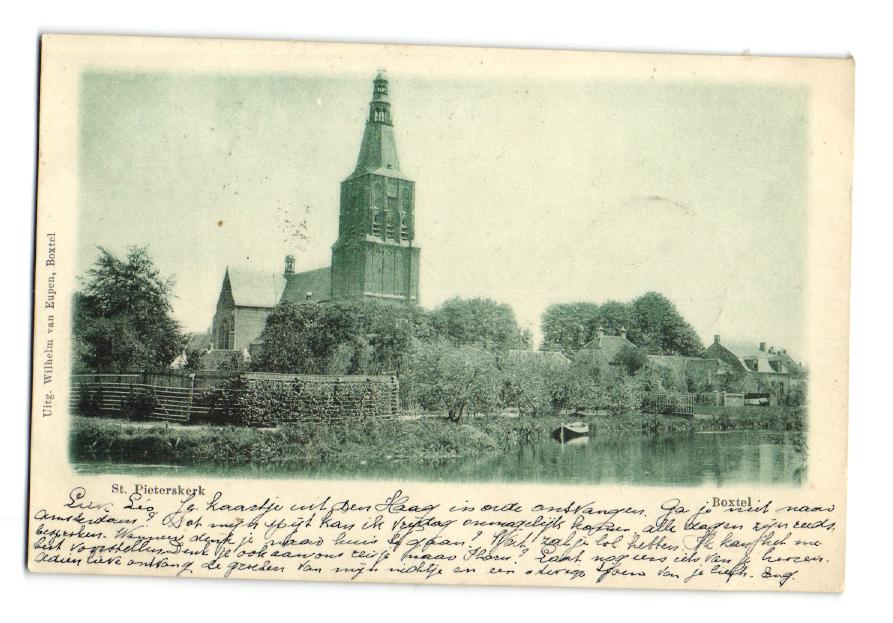 Uitg. Wilhelm van Eupen, Boxtel
St. Pieterskerk
Boxtel
Je kaartje uit Den Haag in orde ontvangen. Ga je niet naar
Amsterdam? Tot mijn spijt kan ik Vrijdag onmogelijk komen, alle dagen zijn reeds
besproken. Wanneer denk je naar huis te gaan? Wat zal je lol hebben. Ik kan het me
best voorstellen. Denk je ook aan ons reisje naar ? Laat nog eens iets van je hooren.
Adieu lieve ontvang de groeten van mijn nichtje en een van je liefh.